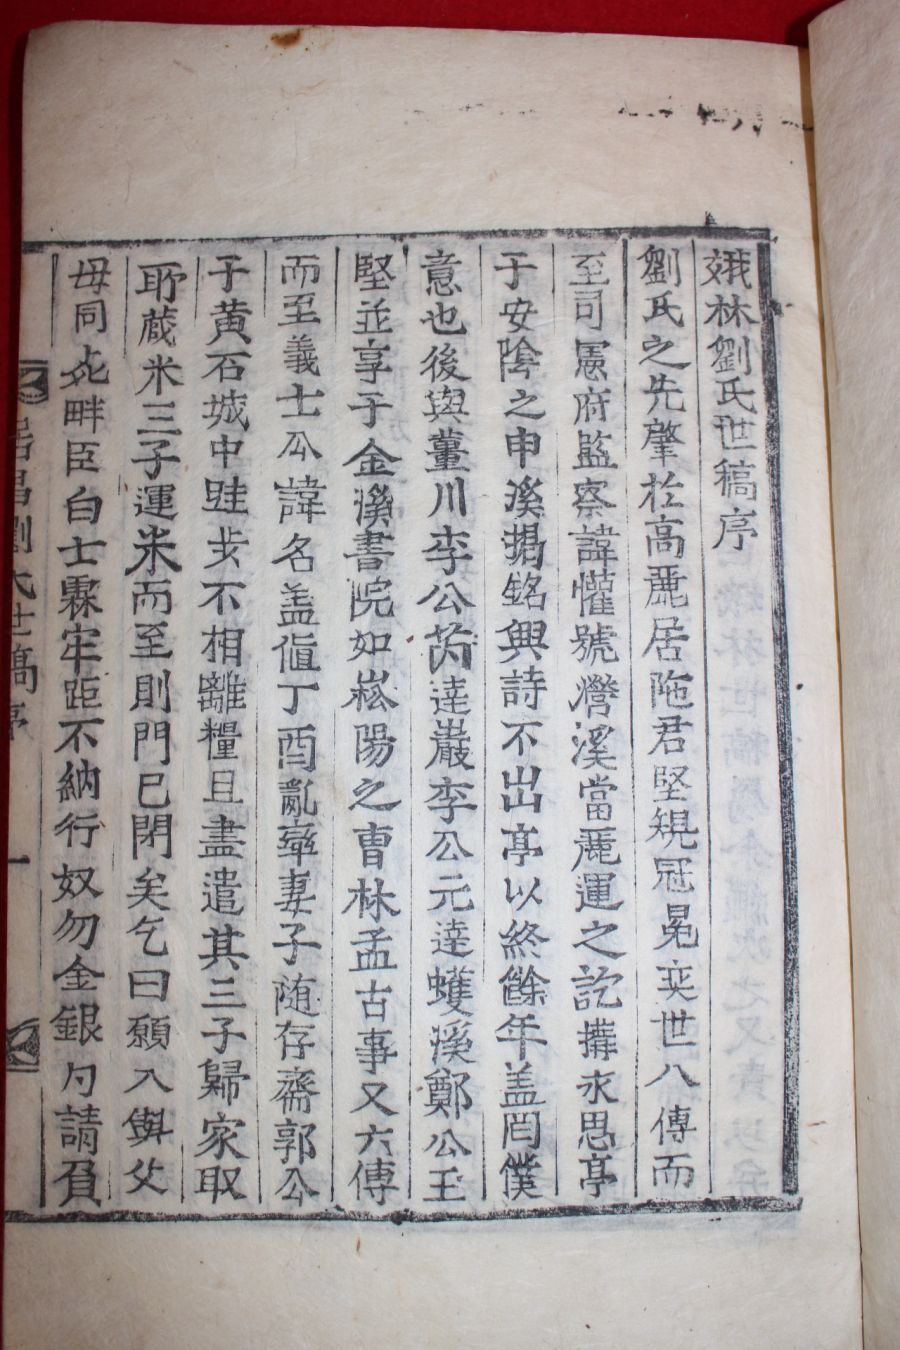 娥林劉氏世稿序
劉氏之先肇於高麗居陁君堅規冠冕奕世八傳而
至司憲府監察諱懽號濳溪當麗運之訖搆永思亭
于安陰之申溪揭銘興詩不出亭以終餘年盖罔僕
意也後與蕫川李公芮達巖李公元達蠖溪鄭公玉
堅並享于金溪書院如崧陽之曺林孟古事又六傳
而至義士公諱名盖値丁酉亂率妻子随存齋郭公
于黄石城中跬步不相離糧且盡遣其三子歸家取
所蔵米三子運米而至則門已閉矣乞曰願入與父
母同死畔臣白士霖牢距不納行奴勿金銀勺請負
居昌劉氏世稿序
一